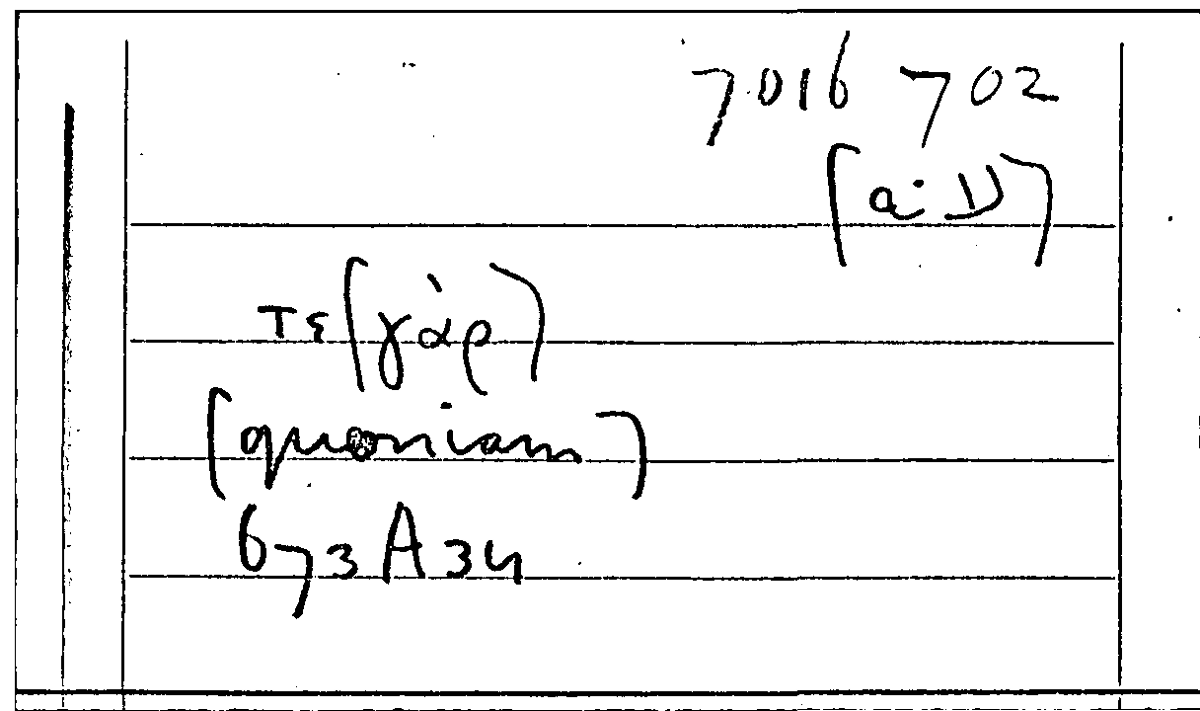 7016 702
τε (γὰρ)
(quoniam)
673A34